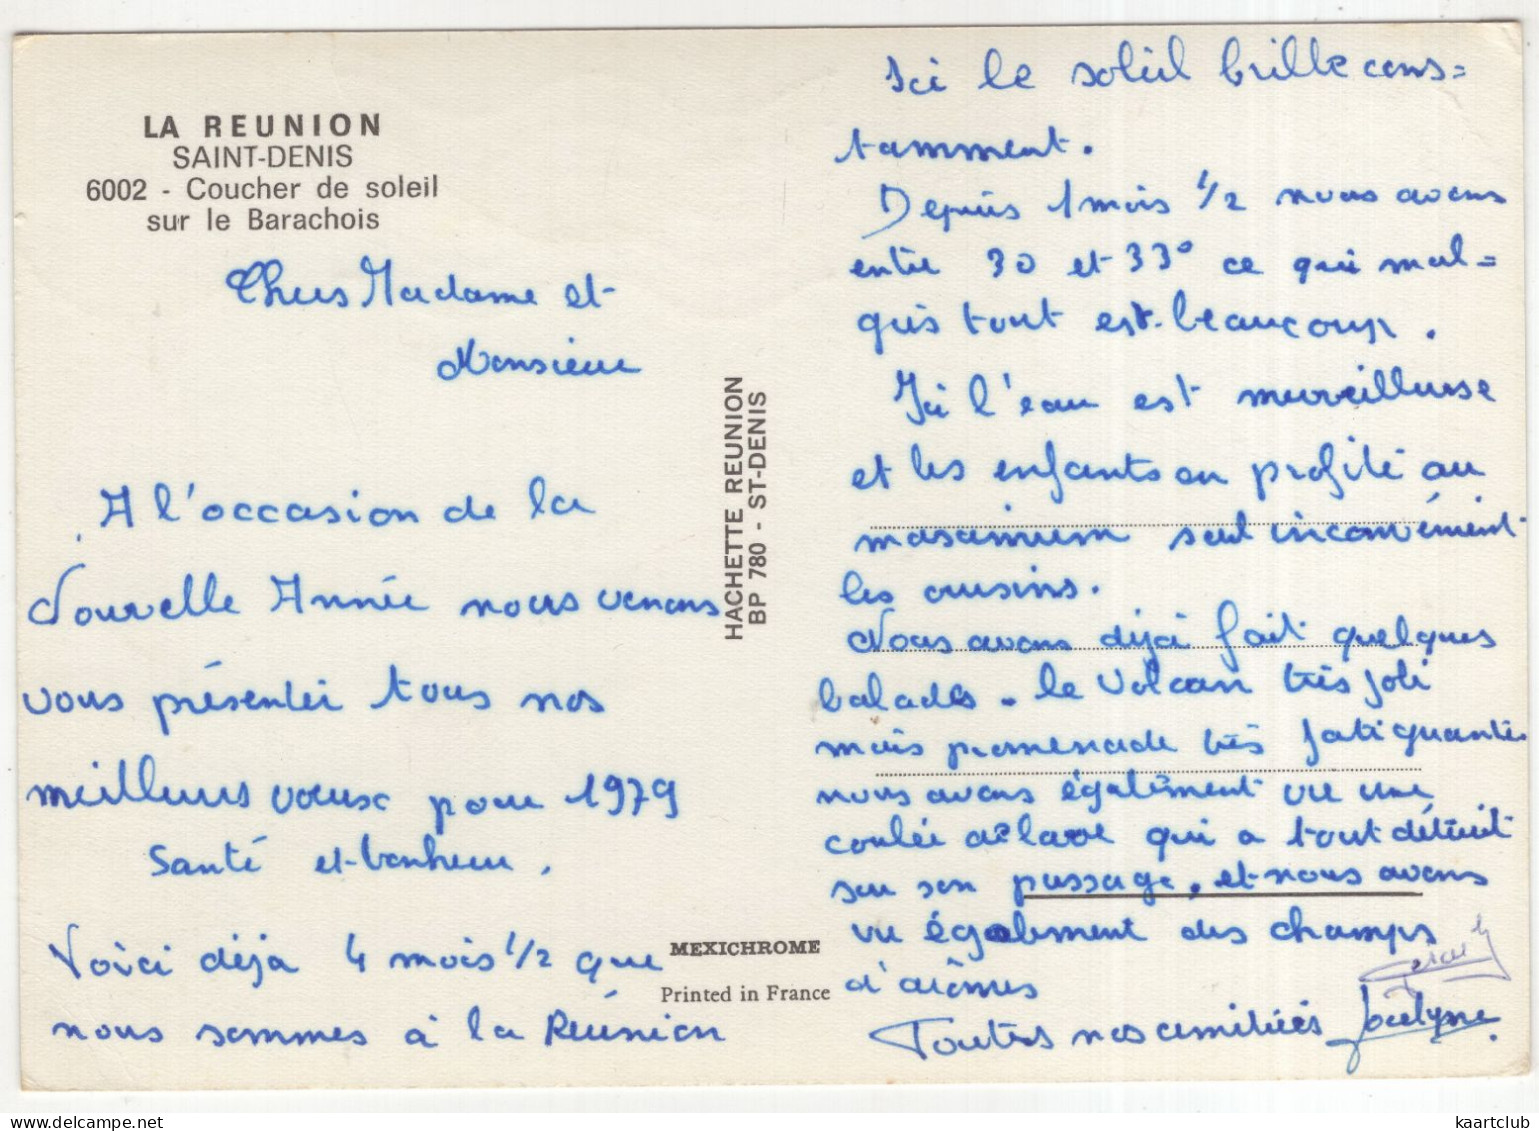 LA REUNION
SAINT-DENIS
6002 - Coucher de soleil
sur le Barachois
Chers Madame et
Monsieur
A l'occasion de la
Nouvelle Année nous venons
vous présenter tous nos
meilleurs voeux pour 1979
Santé et bonheur.
Voici déjà 4 mois 1/2 que
nous sommes à la Réunion
HACHETTE REUNION
BP 780 - ST-DENIS
MEXICHROME
Printed in France
Ici le soleil brille cons=
tamment.
Depuis 1 mois 1/2 nous avons
entre 30 et 33° ce qui mal=
gris tout est beaucoup.
Ici l'eau est merveilleuse
et les enfants en profite au
maximum seul inconvénient
les oursins.
Nous avons déjà fait quelques
balades. Le Volcan très joli
mais promenade très fatiguante.
nous avons également vu une
coulée de lave qui a tout détruit
sur son passage. et nous avons
vu également des champs
d'arômes
Toutes nos amitiés Jocelyne